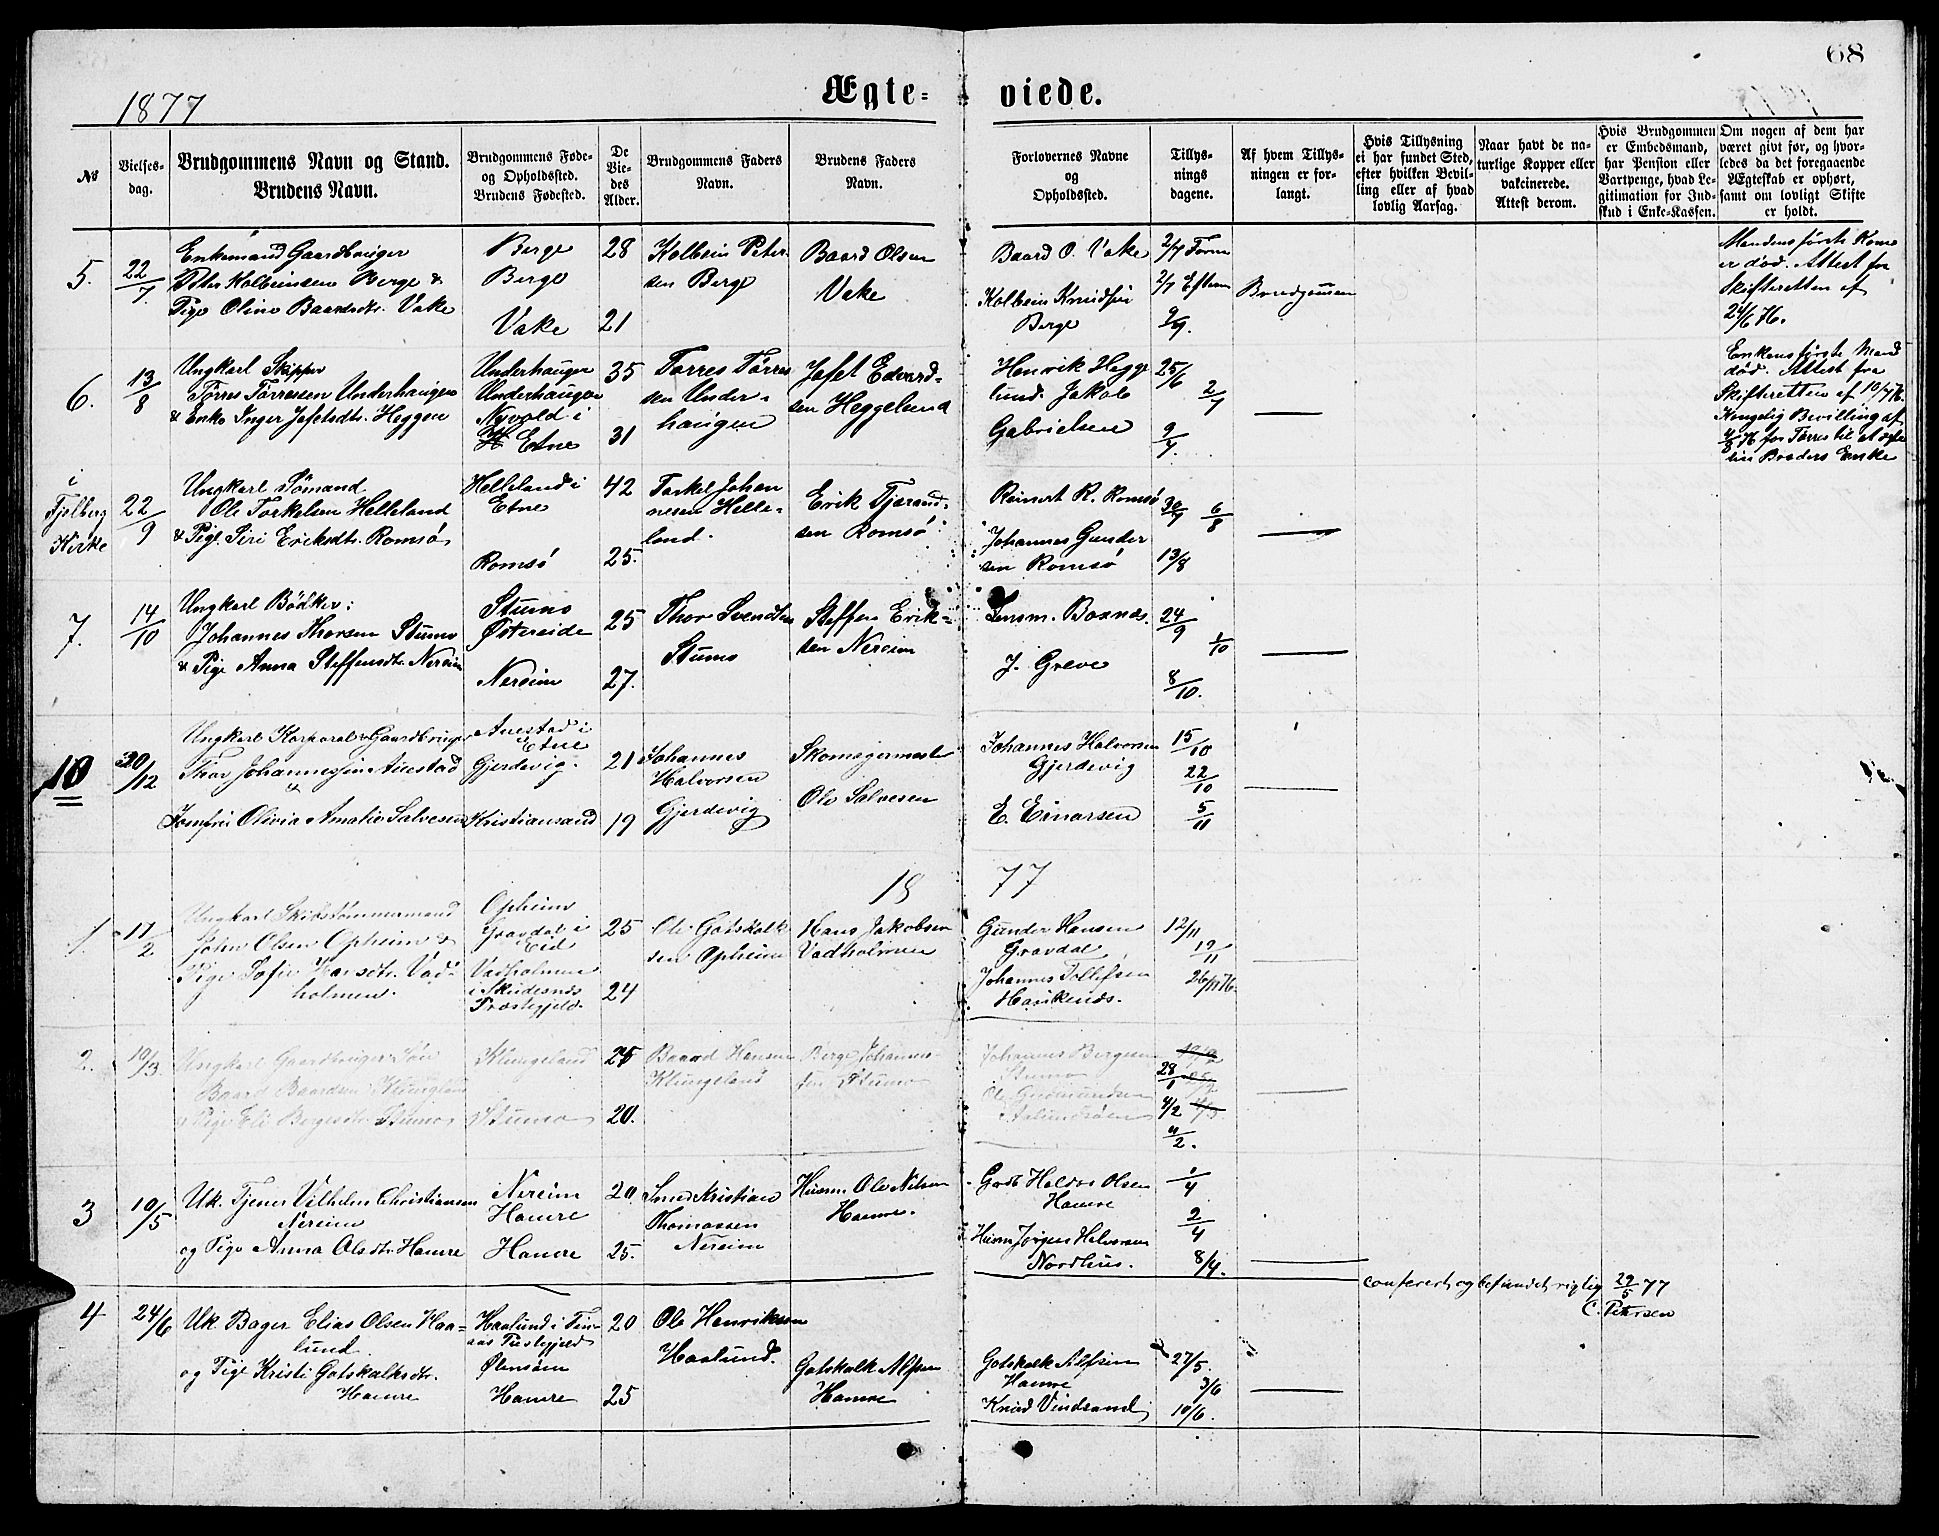 68
1877
Ægte= viede.
№
Vielses-
dag.
Brudgommens Navn og Stand.
Brudens Navn.
Brudgommens Føde-
og Opholdssted.
Brudens Fødested.
De
Vie-
des
Alder.
Brudgommens Faders
Navn.
Brudens Faders
Navn.
Forlovernes Navne
og
Opholdssted.
Tillys-
nings
dagene.
Af hvem Tillys-
ningen er for-
langt.
Hvis Tillysning
ei har fundet Sted,
efter hvilken Bevil-
ling eller af hvad
lovlig Aarsag.
Naar havt de na-
turlige Kopper eller
vakcinerede.
Attest derom.
Hvis Brudgommen
er Embedsmand,
har Pension eller
Vartpenge, hvad Le-
gitimation for Ind-
skud i Enke-Kassen.
Om nogen af dem har
været givt før, og hvor-
ledes da det foregaaende
Ægteskab er ophørt,
samt om lovligt Skifte
er holdt.
5.
22/7
Enkemand Gaardbruger
Peter Kolbeinsen Berge &
Pige Oline Baardsdtr. Vake
Berge
Berge
Vake
28
21
Kolbein Peter
sen Berge
Baard Olsen
Vake
Baard O. Vake
Kolbein Knudsen
Berge
2/7 Form
2/7 Eftem
9/7.
Brudgommen
Mandens første Kone
er død. Attest fra
Skifteretten af
24/6 76.
6.
13/8
Ungkarl Skipper
Tørres Tørressen Underhaugen
& Enke Inger Jafetsdtr. Heggen
Underhaugen
Underhaugen
Nyvold i
Etne
35
31
Tørres Tørres
sen Under-
haugen
Jafet Edvard-
sen Heggelund
Henrik Hegge
lund. Jakob
Gabrielsen
25/6
2/7
9/7.
Enkens første Mand
død. Attest fra
Skifteretten af 10/7 76.
Kongelig Bevilling af
4/8 76 for Tørres til at ægte
sin Broders Enke
i
Fjelberg
Kirke
22/9
Ungkarl Sømand
Ole Torkelsen Helleland
& Pige Siri Eriksdtr. Romsø
Helleland i
Etne
Romsø
42
25.
Torkel Johan
nesen Helle-
land.
Erik Tjerand-
sen Romsø
Reinert R. Romsø
Johannes Gunder
sen Romsø
30/7
6/8
13/8
7.
14/10
Ungkarl Bødker:
Johannes Thorsen Stumo
& Pige Anna Steffensdtr. Nereim
Stumo
Østereide
Nereim
25
27.
Thor Svendsen
Stumo
Steffen Erik=
sen Nereim
Lensm. Boxnæs
J. Greve
24/9
1/10
8/10.
10
30/12
Ungkarl Korporal & Gaardbruger
Thor Johannessen Auestad
&
Jomfru Olivia Amalie Salvesen
Auestad i
Etne
Gjerdevig.
Kristiansand
21
19
Johannes
Halvorsen
Gjerdevig
Skomagermester
Ole Salvesen
Johannes Halvorsen
Gjerdevig
E. Einarsen
15/10
22/10
5/11
18 77
1.
11/2
Ungkarl Skibstømmermand
John Olsen Opheim &
Pige Sofie Hansdtr. Vad-
holmen.
Opheim
Gravdal i
Eid
Vadholmen
i Skudesnes
Præstegjeld.
25
24
Ole Gotskalk
sen Opheim
Hans Jakobsen
Vadholmen
Gunder Hansen
Gravdal
Johannes Tollefsen
Haukenæs.
12/11
19/11
26/11 76.
2.
10/3.
Ungkarl Gaardbruger Søn
Baard Baardsen Klungeland
& Pige Eli Bergesdtr. Stumo
Klungeland
Stumo
25
20.
Baard Hansen
Klungeland
Berge Johannes-
sen Stumo
Johannes Bergesen
Stumo
Ole Gudmundsen
28/1
4/2
11/2.
3
10/5
Uk. Tjener Vilhelm Christiansen
Nereim
og Pige Anna Olsdtr. Hamre
Nereim
Hamre
Hamre
20
25.
Smed Kristian
Thomassen
Nereim
Husm. Ole Nilsen
Hamre.
Gdb. Haldor Olsen
Hamre
Husm. Jørgen Halvorsen
Nordhus.
1/4
2/4
8/4.
Confereret og befundet rigtig 29/5 77
C. Petersen
4
24/6
Uk. Bager Elias Olsen Haa=
lund
og Pige Kristi Gotskalksdtr.
Hamre
Haalund i Fin-
aas Prestegjeld
Ølensøen
Hamre
20
25
Ole Henriksen
Haalund.
Gotskalk Alfsen
Hamre
Gotskalk Alfsen
Hamre
Knud Vindsand
27/5.
3/6
10/6.